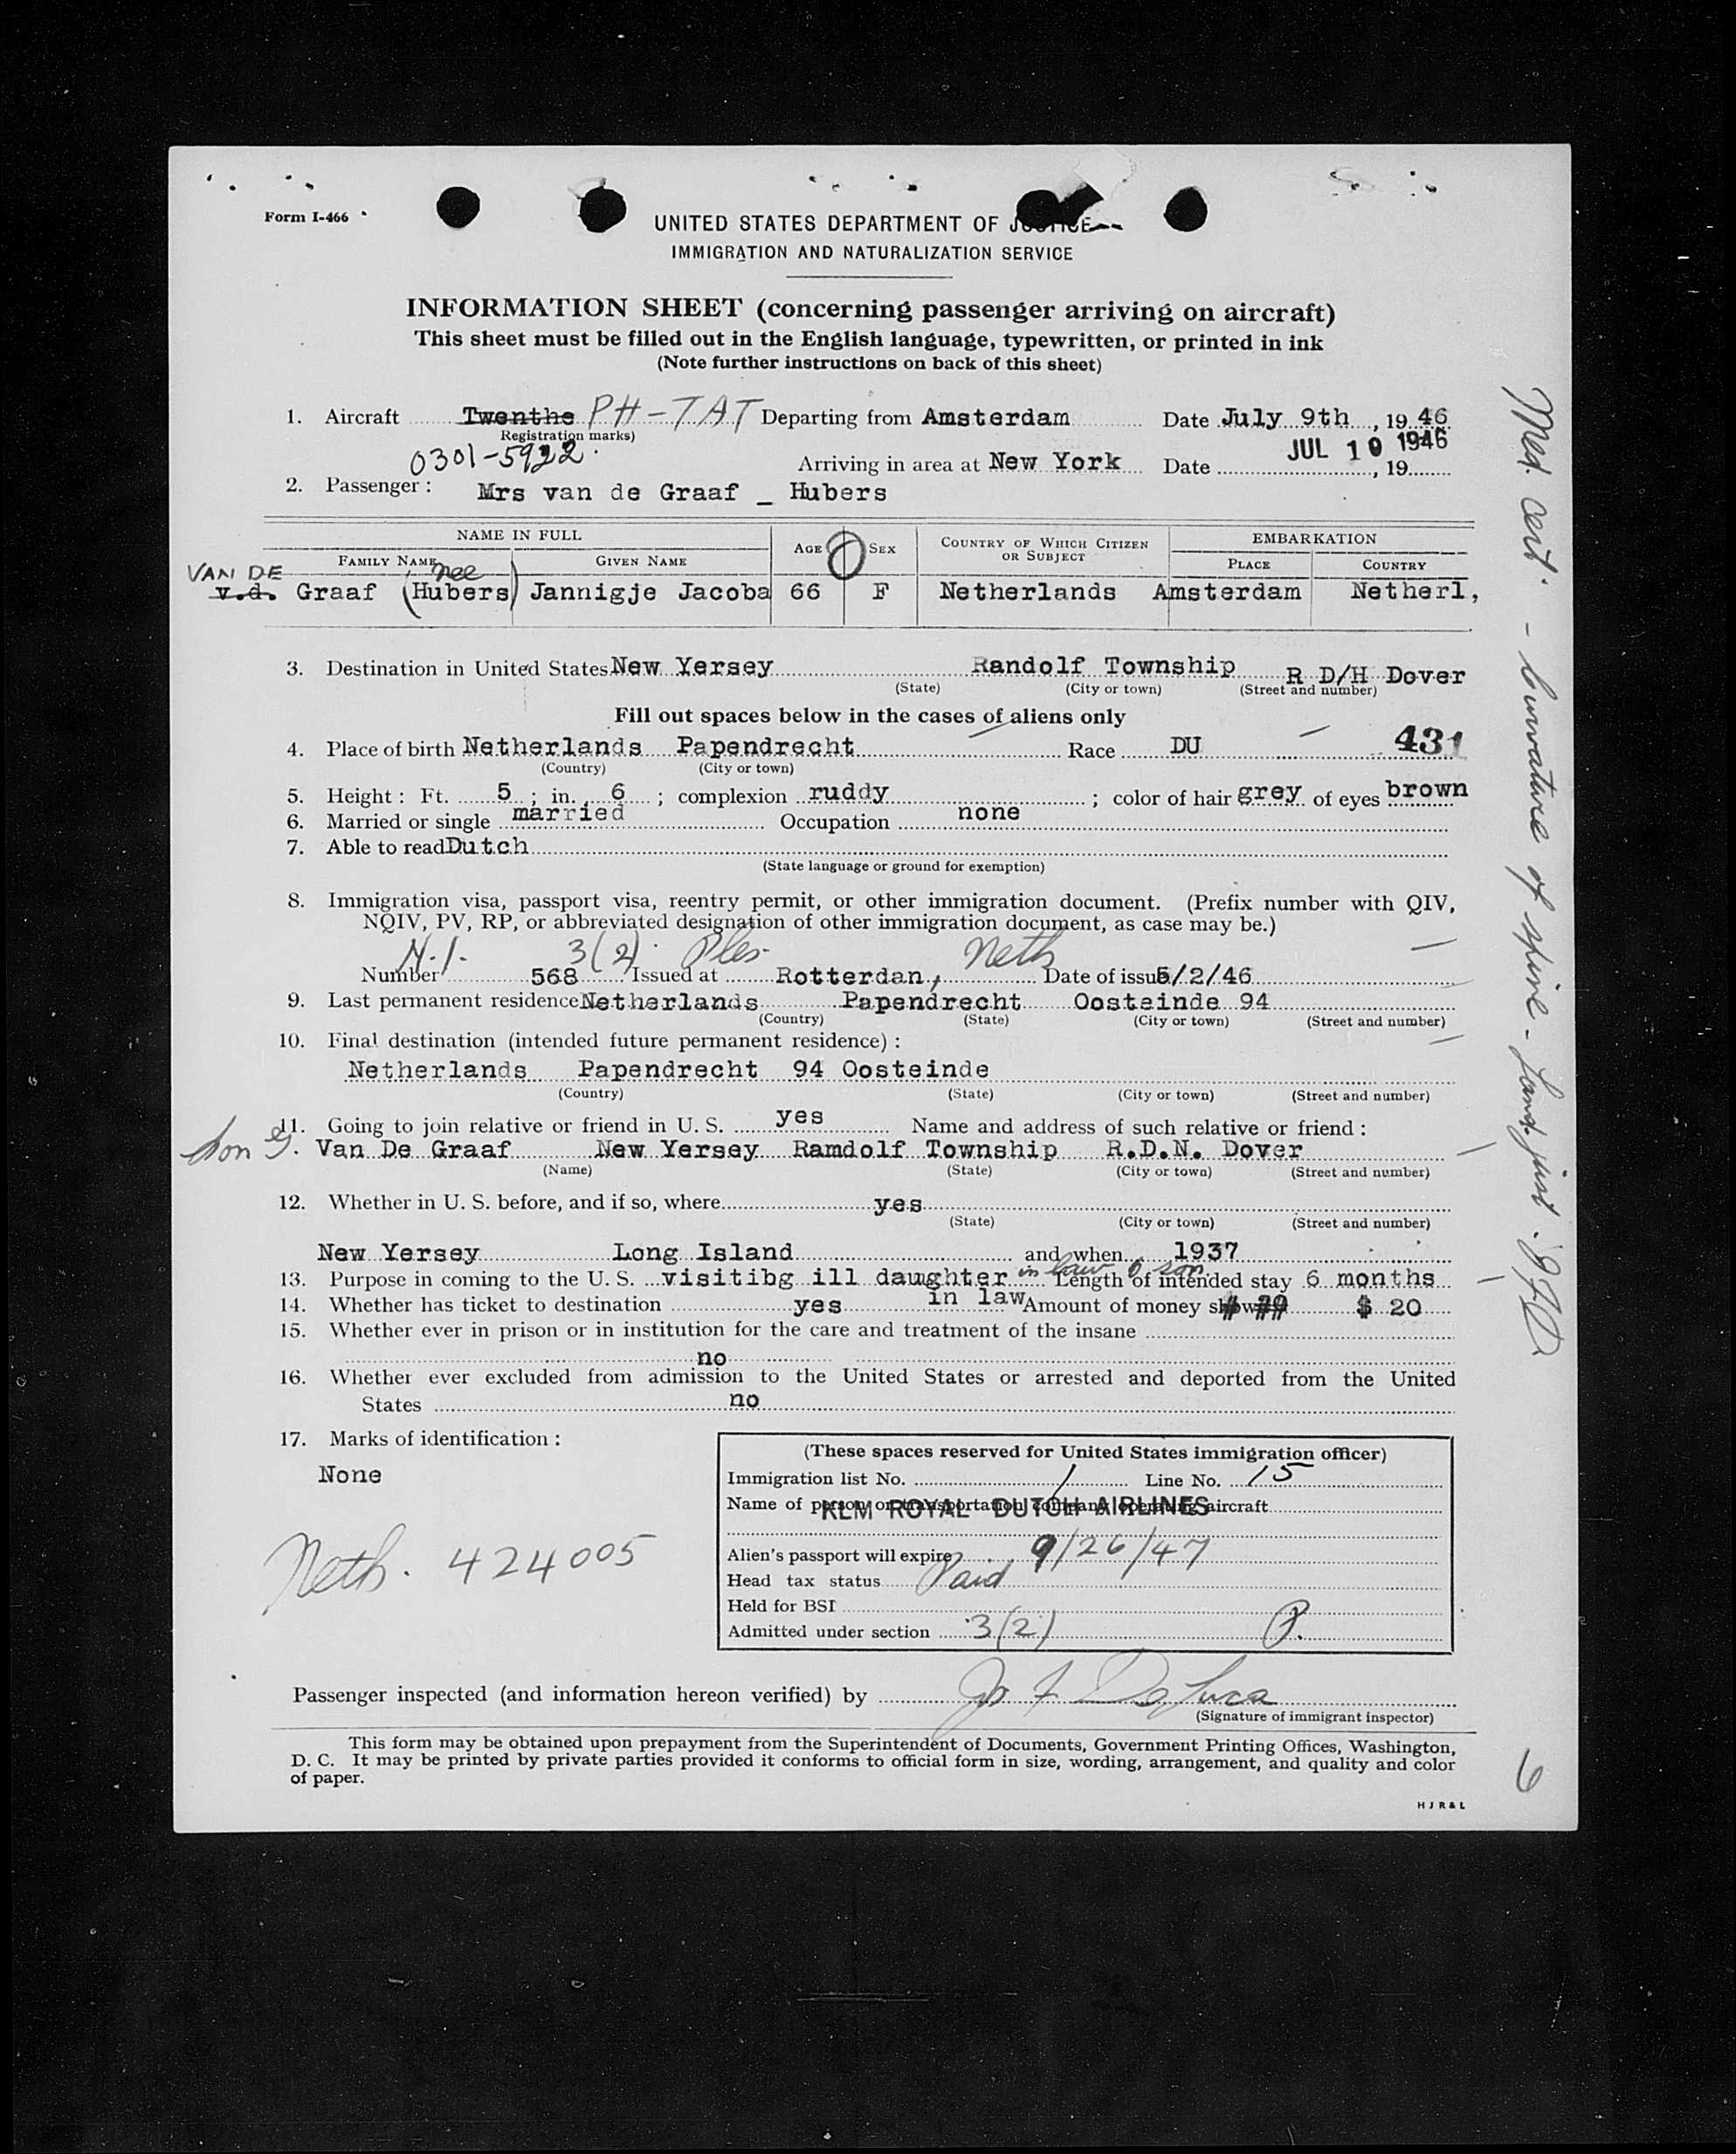 Form I-466
UNITED STATES DEPARTMENT OF JUSTICE
IMMIGRATION AND NATURALIZATION SERVICE
INFORMATION SHEET (concerning passenger arriving on aircraft)
This sheet must be filled out in the English language, typewritten, or printed in ink
(Note further instructions on back of this sheet)
1. Aircraft Twenthe PH-TAT Departing from Amsterdam Date July 9th, 1946
Registration marks)
0301-5922 Arriving in area at New York Date JUL 10 1946, 19
2. Passenger: Mrs van de Graaf _ Hubers
NAME IN FULL AGE SEX COUNTRY OF WHICH CITIZEN OR SUBJECT EMBARKATION
FAMILY NAME GIVEN NAME PLACE COUNTRY
VAN DE nee
v.d. Graaf (Hubers) Jannigje Jacoba 66 F Netherlands Amsterdam Netherl,
3. Destination in United States New Yersey Randolf Township R D/H Dover
(State) (City or town) (Street and number)
Fill out spaces below in the cases of aliens only
4. Place of birth Netherlands Papendrecht Race DU 431
(Country) (City or town)
5. Height: Ft. 5; in. 6; complexion ruddy; color of hair grey of eyes brown
6. Married or single married Occupation none
7. Able to read Dutch
(State language or ground for exemption)
8. Immigration visa, passport visa, reentry permit, or other immigration document. (Prefix number with QIV,
NQIV, PV, RP, or abbreviated designation of other immigration document, as case may be.)
3(2) Neth
Number 568 Issued at Rotterdan, Date of issue 5/2/46
9. Last permanent residence Netherlands Papendrecht Oosteinde 94
(Country) (State) (City or town) (Street and number)
10. Final destination (intended future permanent residence):
Netherlands Papendrecht 94 Oosteinde
(Country) (State) (City or town) (Street and number)
11. Going to join relative or friend in U. S. yes Name and address of such relative or friend:
son G. Van De Graaf New Yersey Ramdolf Township R.D.N. Dover
(Name) (State) (City or town) (Street and number)
12. Whether in U. S. before, and if so, where yes
(State) (City or town) (Street and number)
New Yersey Long Island and when 1937
13. Purpose in coming to the U. S. visitibg ill daughter in law & son Length of intended stay 6 months
14. Whether has ticket to destination yes in law Amount of money shown $ 20
15. Whether ever in prison or in institution for the care and treatment of the insane
no
16. Whether ever excluded from admission to the United States or arrested and deported from the United
States no
17. Marks of identification:
None
Neth. 424005
(These spaces reserved for United States immigration officer)
Immigration list No. 1 Line No. 15
Name of person or transportation company operating aircraft
KLM ROYAL DUTCH AIRLINES
Alien's passport will expire 9/26/47
Head tax status Paid
Held for BSI
Admitted under section 3(2) P.
Passenger inspected (and information hereon verified) by
(Signature of immigrant inspector)
This form may be obtained upon prepayment from the Superintendent of Documents, Government Printing Offices, Washington,
D. C. It may be printed by private parties provided it conforms to official form in size, wording, arrangement, and quality and color
of paper.
H J R & L
Med. cert. - curvature of spine -
6